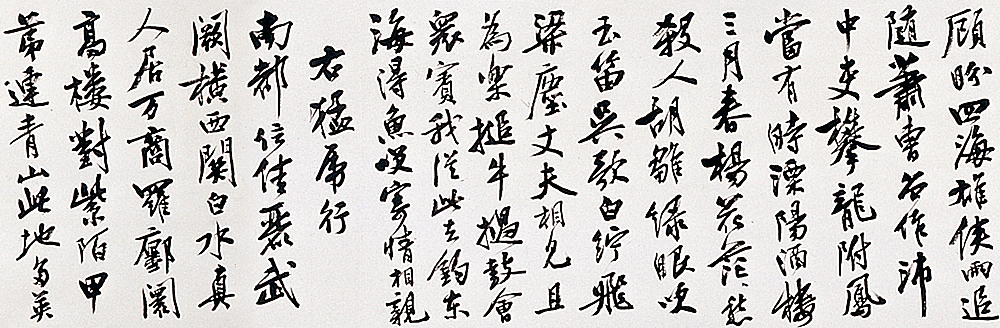 顧盼四海雄俠兩追
隨蕭曹曾作沛
中吏攀龍附鳳
當有時溧陽酒樓
三月春楊花茫〻愁
殺人胡雛綠眼吹
玉笛吳歌白紵飛
梁塵丈夫相見且
為樂搥牛撾鼓會
眾賓我從此去釣東
海得魚笑寄情相親
右猛虎行
南都信佳麗武
闕橫西關白水真
人居万商羅鄽闠
高樓對紫陌甲
第連青山此地多英